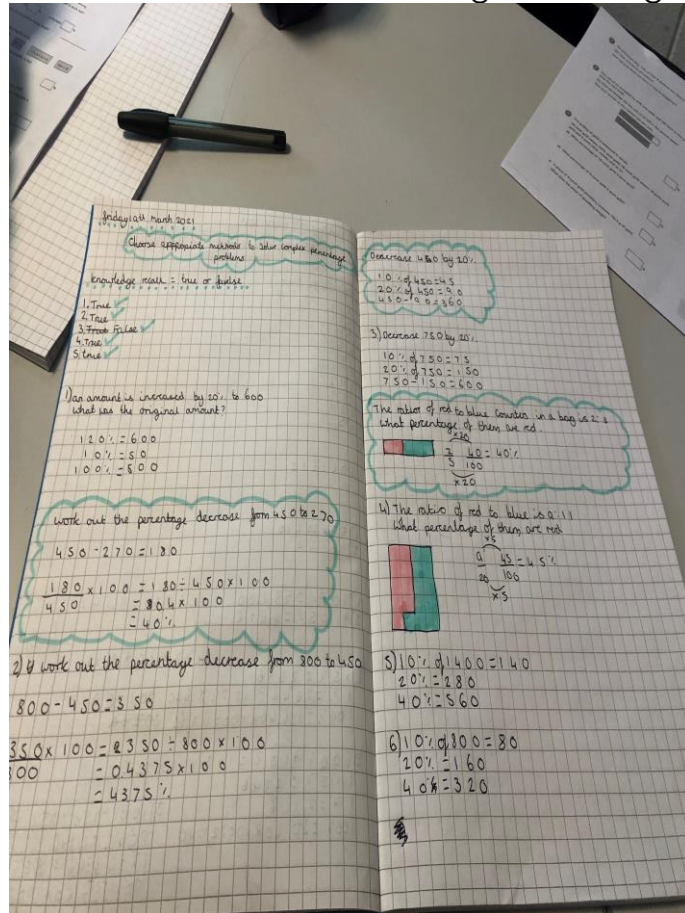 friday 19th march 2021
Choose appropiate methods to solve complex percentage
problems
knowledge recall = true or false
1. True
2. True
3. False
4. True
5. true
1) an amount is increased by 20% to 600
what was the original amount?
120% = 600
10% = 50
100% = 500
work out the percentage decrease from 450 to 270
450 - 270 = 180
180/450 x 100 = 180 ÷ 450 x 100
= 0.4 x 100
= 40%
2) work out the percentage decrease from 800 to 450
800 - 450 = 350
350/800 x 100 = 350 ÷ 800 x 100
= 0.4375 x 100
= 43.75%
Decrease 450 by 20%
10% of 450 = 45
20% of 450 = 90
450 - 90 = 360
3) Decrease 750 by 20%
10% of 750 = 75
20% of 750 = 150
750 - 150 = 600
The ratio of red to blue counters in a bag is 2:3
What percentage of them are red
x20
2/5 40/100 = 40%
x20
4) The ratio of red to blue is 9:11
What percentage of them are red
x5
9/20 45/100 = 45%
x5
5) 10% of 1400 = 140
20% = 280
40% = 560
6) 10% of 800 = 80
20% = 160
40% = 320